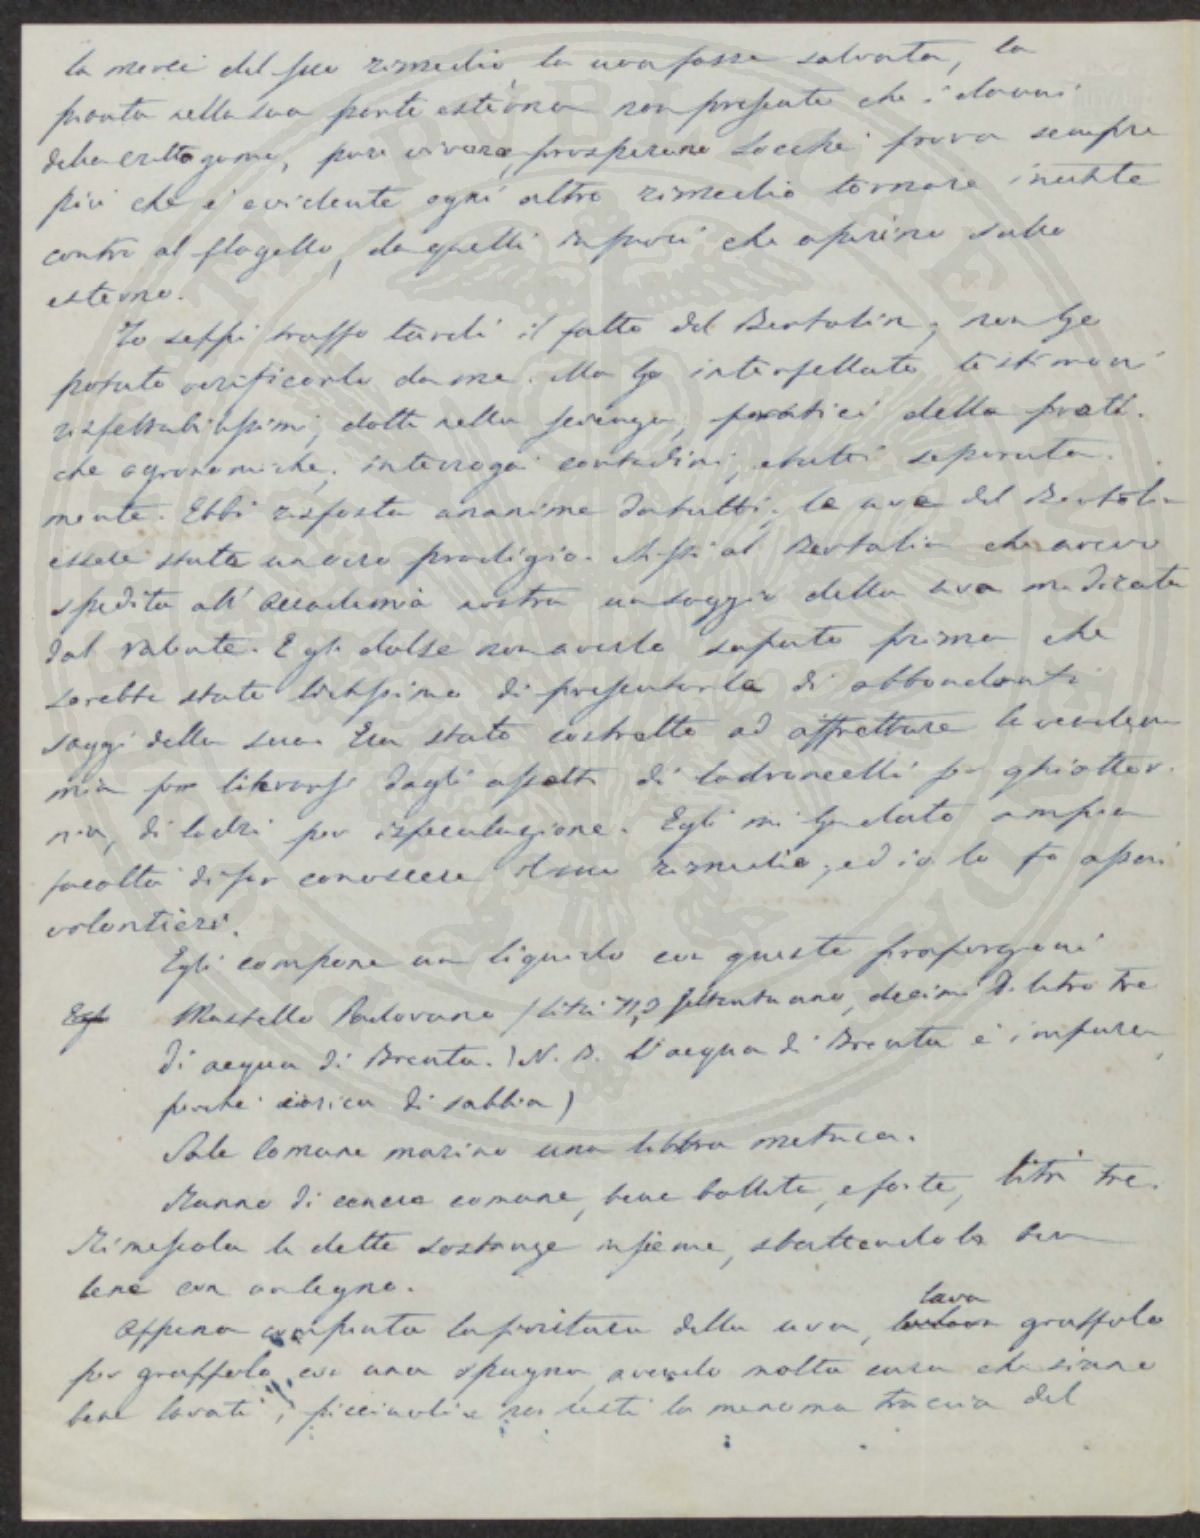 la mercè del suo rimedio, la uva fosse salvata, la
pianta nella sua parte esterna non presentò che i danni
della crittogama, pure vivere, prosperare Locchè prova sempre
più che è evidente ogni altro rimedio tornare inutile
contro al flagello, da quelli in fuori che aparino sulla
esterno.
Io seppi troppo tardi il fatto del Bertolin, non ho
potuto verificarlo da me. Ma ho interpellato testimoni
rispettabilissimi, dotti nella scienza, pratici della prati-
che agronomiche, interrogai contadini, e tutti separata-
mente. Ebbi risposta unanime da tutti, le uve del Bertolin
essere state un vero prodigio. Dissi al Bertolin che avevo
spedito all'Accademia nostra un saggio della uva medicata
dal Valente. Egli dolse non averlo saputo prima che
sarebbe stato lietissimo di presentarla di abbondanti
saggi della sua. Era stato costretto ad affrettare la vendem
mia per liberarsi dagli assalti di ladroncelli per ghiotter-
nia, di ladri per ispeculazione. Egli mi ha dato ampia
facoltà di far conoscere il suo rimedio, ed io lo fo assai
volontieri.
Egli compone un liquido con queste proporzioni
Egli Mastello Padovano (litri 71,3 settantuano, decimi di litro tre
di acqua di Brenta. (N. B. L'acqua di Brenta è impura,
perchè carica di sabbia)
Sale comune marino una libbra metrica.
Ranno di cenere comune, bene bollito, e forte, litri tre.
Rimescola le dette sostanze insieme, sbattendole ben
bene con un legno.
Appena compiuta la fioritura della uva, lava grappolo
per grappolo con una spugna, avendo molta cura che siano
bene lavati i picciuoli e non resti la menoma traccia del